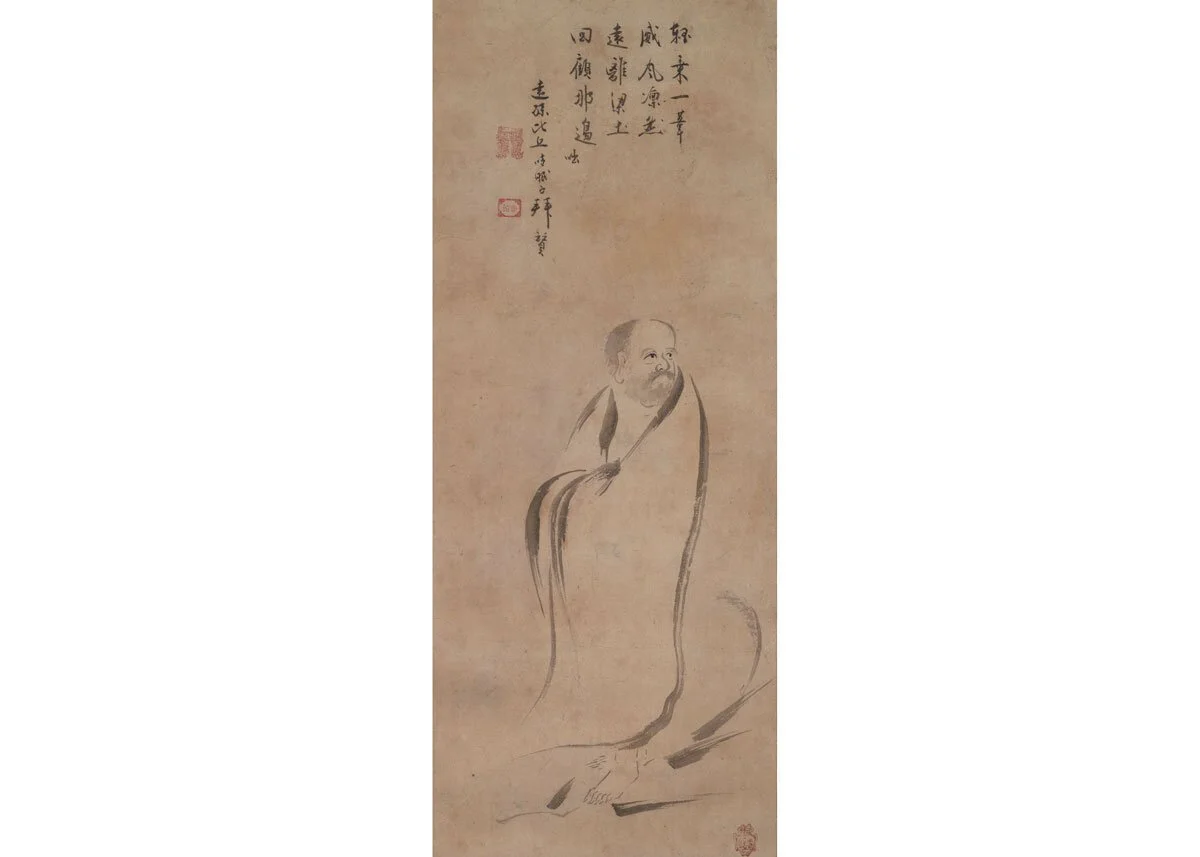 輕乘一葦
威風凛然
遠離梁土
回顧那邊咄
遠孫比丘眠子拜贊